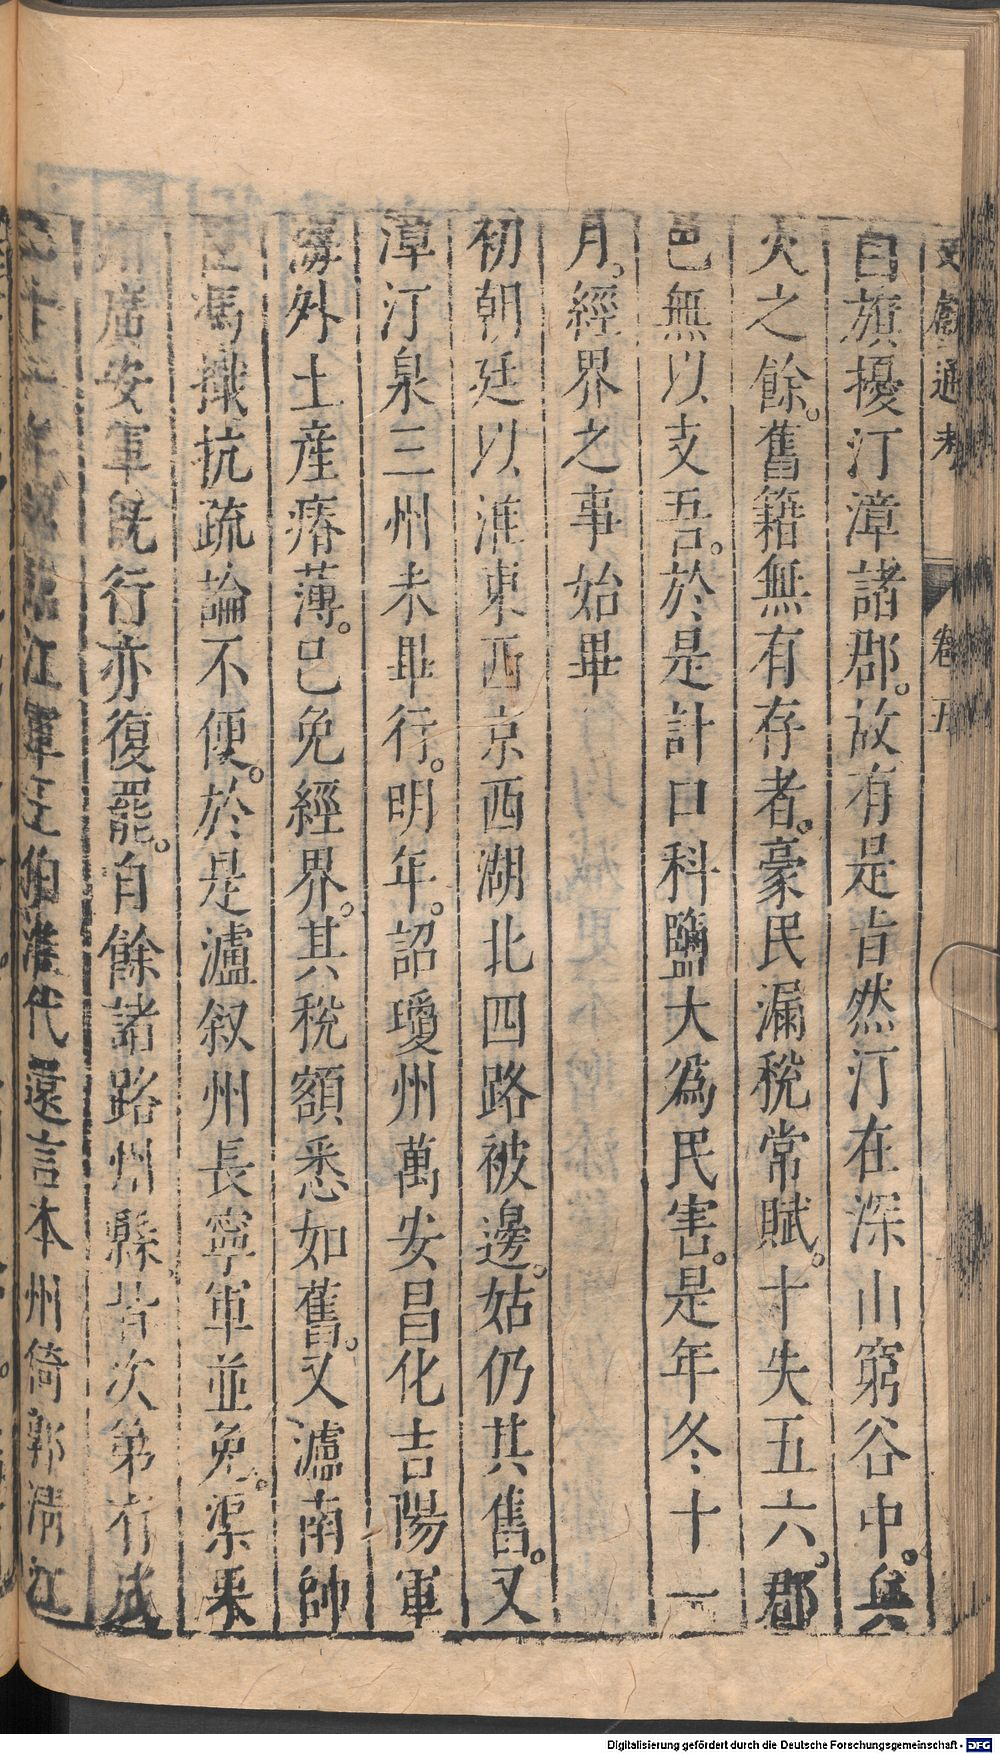 文獻通考 卷五
白旗擾汀漳諸郡。故有是旨然汀在深山窮谷中。兵
火之餘。舊籍無有存者。豪民漏稅常賦。十失五六。郡
邑無以支吾。於是計口科鹽大爲民害。是年冬十一
月。經界之事始畢
初朝廷以淮東西京西湖北四路被邊。姑仍其舊。又
漳汀泉三州未畢行。明年。詔瓊州萬安昌化吉陽軍
海外土產瘠薄。已免經界。其稅額悉如舊。又瀘南帥
臣馮檝抗疏論不便。於是瀘叙州長寧軍並免。渠果
州廣安軍旣行亦復罷。自餘諸路州縣。皆次第有成
江軍王伯淮代還言本州倚郭清江
Digitalisierung gefördert durch die Deutsche Forschungsgemeinschaft - DFG